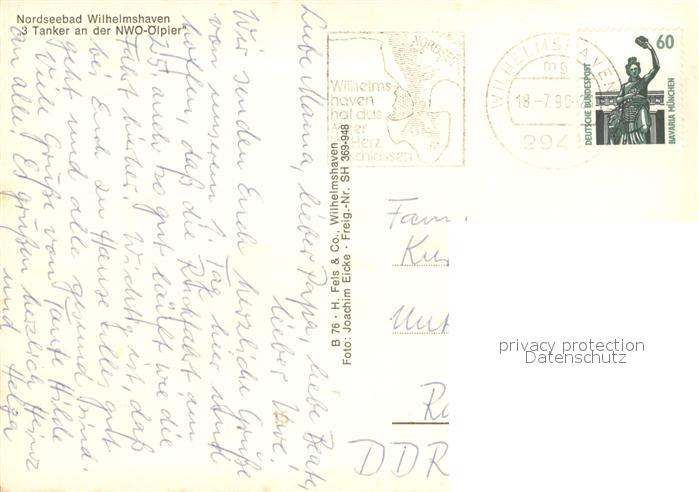 Nordseebad Wilhelmshaven
3 Tanker an der NWO-Ölpier
Liebe Mama, lieber Papa, liebe Beate,
lieber Uwe!
Wir senden Euch herzliche Grüße
von unserem 1. Tag hier und
hoffen, daß die Rückfahrt am
25. auch so gut läuft wie die
Fahrt hierher. Wichtig ist, daß
bei Euch zu Hause alles gut
geht und alle gesund sind.
Viele Grüße von Tante Hilde
an alle. Es grüßen herzlich Heinz
und Helga
B 76 · H. Fels & Co., Wilhelmshaven
Foto: Joachim Eicke · Freig.-Nr. SH 369-948
NORDSEE
Wilhelms
haven
hat das
Meer
Herz
schlossen
WILHELMSHAVEN
mg
18-7.90
294
60
DEUTSCHE BUNDESPOST
BAVARIA MÜNCHEN
Fam.
DDR
privacy protection
Datenschutz